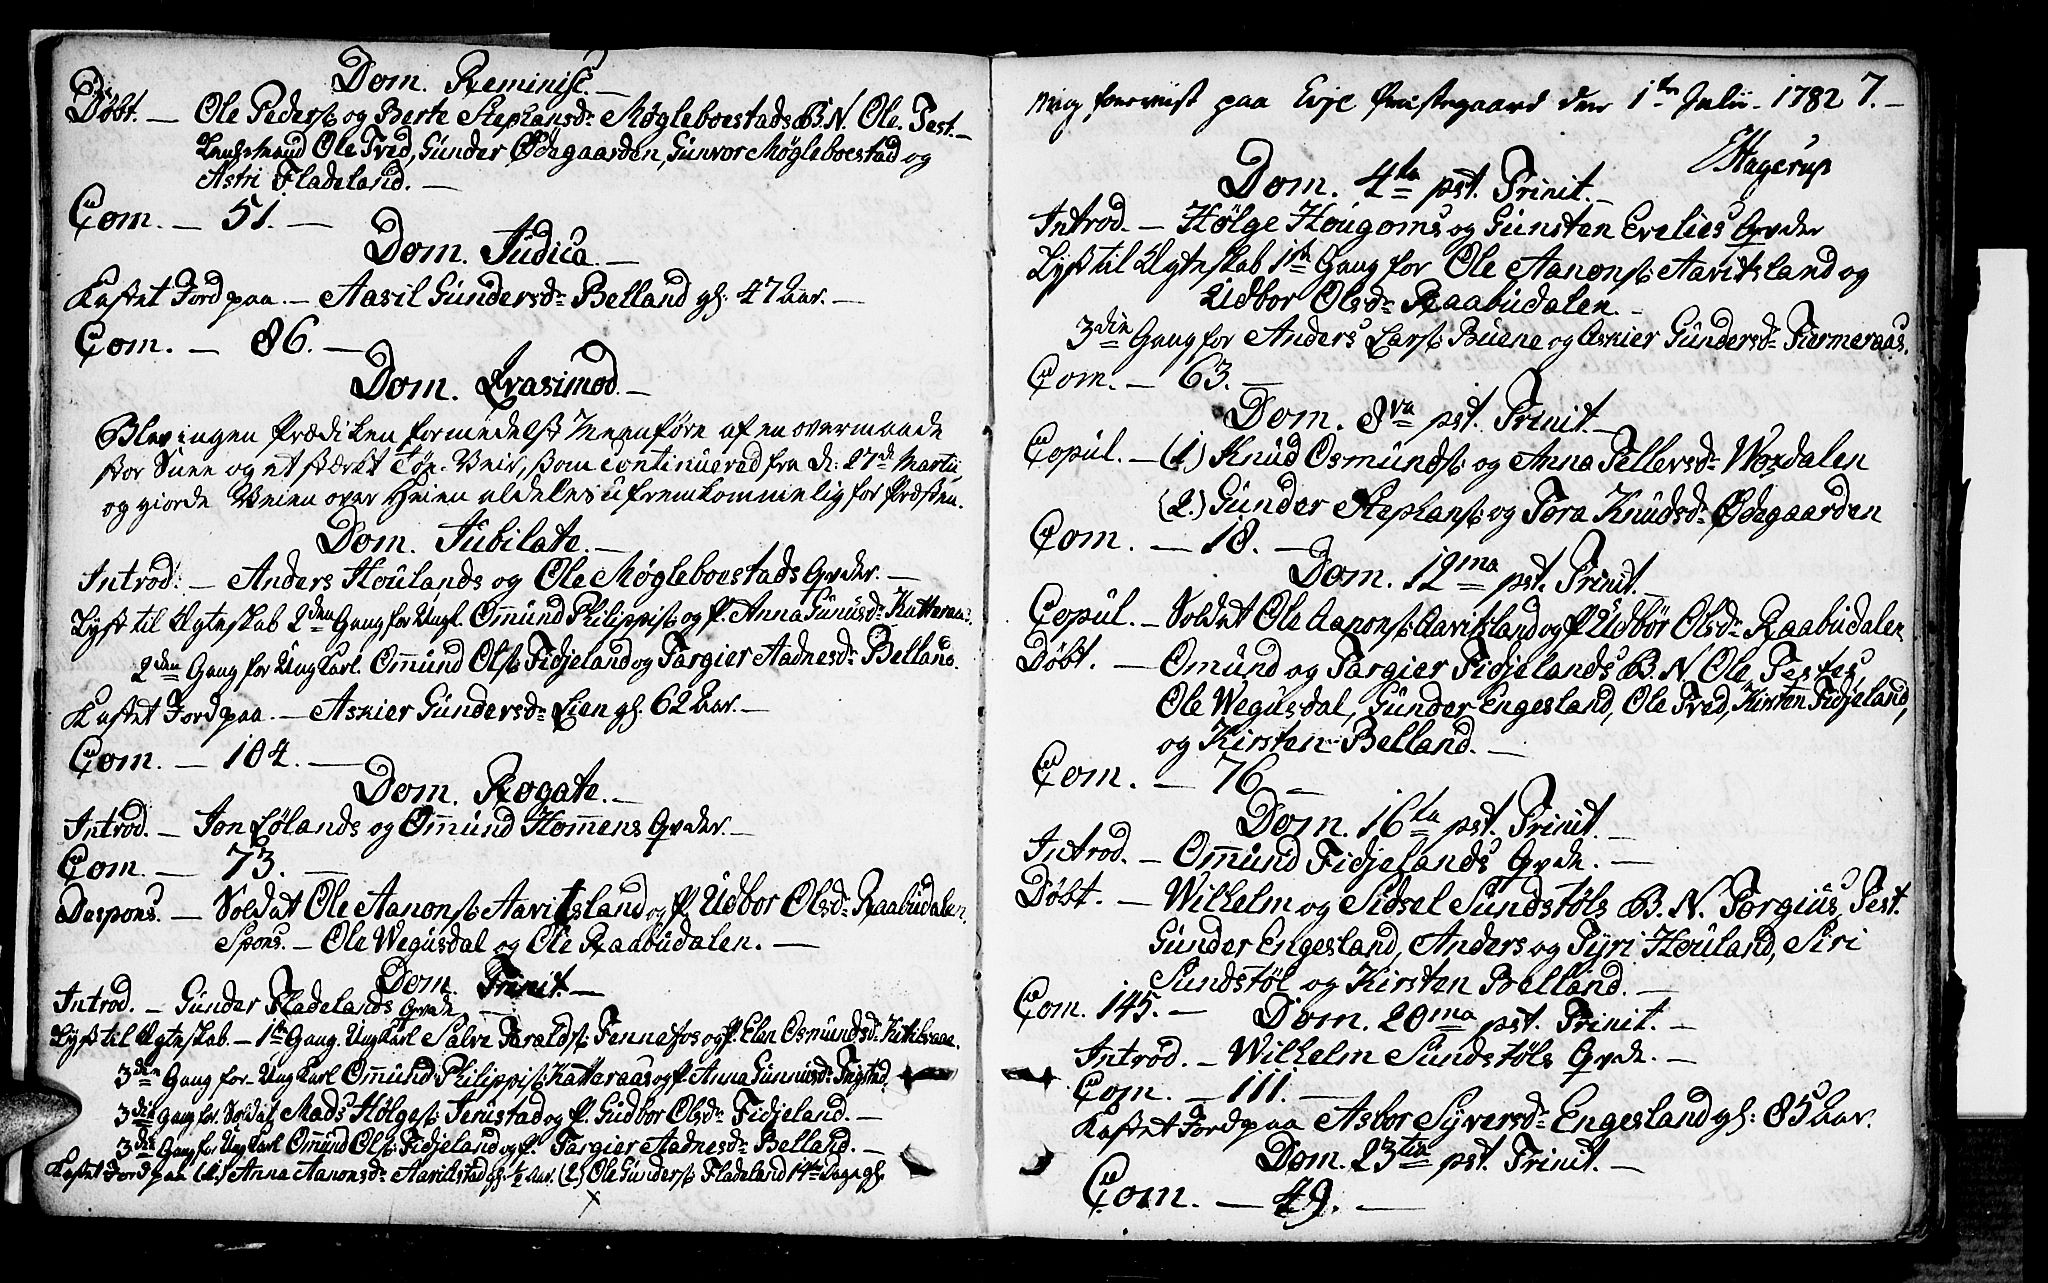 Dom. Reminisc. —
Døbt. — Ole Peders: og Berte Stephansd: Møgleboestads B. N. Ole. Test. —
Ole Tved, Gunder Ødegaarden, Gunvor Møgleboestad og
Astri Fladeland. —
Com. — 51. —
Dom. Judica. —
Kastet Jord paa. — Aasil Gundersd: Belland gl: 47 Aar. —
Com. — 86. —
Dom. Qvasimod. —
Blev ingen Prædiken formedelst Meenføre af en overmaade
stor Snee og et stærkt Søe-Veir, som continuerad fra d: 27d Martii
og giorde Veien over Heien aldeles ufremkommelig for Præsten.
Dom. Jubilate. —
Introd: — Anders Houlands og Ole Møgleboestads Qvder. —
Lyst til Ægteskab 2den Gang for Ungk. Omund Philipps: og P. Anna Gunusd: Katteraas.
2den Gang for Ung Karl. Omund Ols: Fidjeland og Targier Aadnesd: Belland.
Kastet Jord paa. — Askier Gundersd: Lien gl. 62 Aar. —
Com. — 104. —
Dom. Rogate. —
Introd. — Jon Lølands og Omund Homens Qvder. —
Com. — 73. —
Despons. — Soldat Ole Aanons: Aavitsland og P. Udbor Olsd: Raabudalen.
Spons. — Ole Wegusdal og Ole Raabudalen. —
Dom. Trinit. —
Introd. — Gunder Fladelands Qvde —
Lyst til Ægteskab. — 1te Gang. Ung Karl Salve Taralds: Fennefos og P. Elen Osmundsd: Kittilsaae.
3die Gang for Ung Karl Omund Philipps: Katteraas og P. Anna Gunnusd:
3die gang for. Soldat Mads Hølges: Jerustad og P. Gudbor Olsd: Fidjeland. —
3die Gang for Ung Karl Omund Ols: Fidjeland og P. Targier Aadnesd: Belland. —
Kastet Jord paa (1.) Anna Aanonsd: Aavikstad gl: ½ Aar. (2) Ole Gunders: Fladeland 14 Dage gl.
mig foreviist paa Evje Præstegaard den 1te Julii 1782 7. —
Hagerup
Dom. 4ta pst. Trinit. —
Introd. — Hølge Hougoms og Gunstan Evelies Qvder
Lyst til Ægteskab 1te Gang for Ole Aanons: Aavitsland og
Udbor Olsd: Raabudalen. —
3die Gang for Anders Lars: Buene og Askier Gundersd: Fiermeraas.
Com. — 63. —
Dom. 8va pst. Trinit. —
Copul. — (1) Knud Osmunds: og Anna Tellersd: Woxdalen
(2.) Gunder Stephans: og Tora Knudsd: Ødegaarden
Com. — 18. —
Dom. 12ma pst. Trinit. —
Copul. — Soldat Ole Aanons: Aavitsland og P. Udbor Olsd: Raabudalen
Døbt. — Omund og Targier Fidjelands B. N. Ole, Testes
Ole Wegusdal, Gunder Engesland, Ole Tved, Kirsten Fidjeland,
og Kirsten Belland. —
Com. — 76 —
Dom. 16ta pst. Trinit. —
Introd. — Omund Fidjelands Qvde. —
Døbt. — Wilhelm og Sidsel Sundstøls B. N. Torgius, Test.
Gunder Engesland, Anders og Tyri Houland, Siri
Sundstøl og Kirsten Belland. —
Com. 145. —
Dom. 20ma pst. Trinit. —
Introd. — Wilhelm Sundstøls Qvde. —
Com. — 111. —
Kastet Jord paa Asbor Syversd: Engesland gl: 85 Aar.
Dom. 23tia pst. Trinit. —
Com. — 49. —